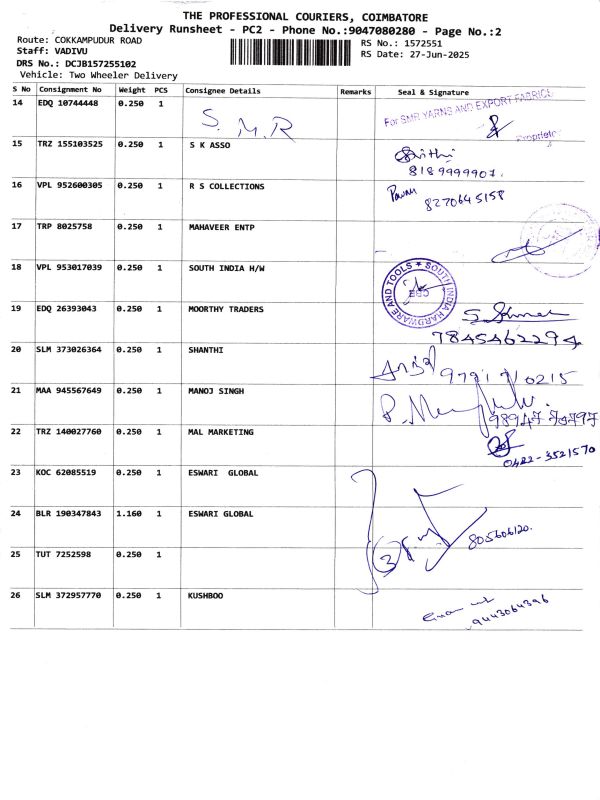 THE PROFESSIONAL COURIERS, COIMBATORE
Delivery Runsheet - PC2 - Phone No.:9047080280 - Page No.:2
Route: COKKAMPUDUR ROAD
RS No.: 1572551
Staff: VADIVU
RS Date: 27-Jun-2025
DRS No.: DCJB157255102
Vehicle: Two Wheeler Delivery
S No Consignment No Weight PCS Consignee Details Remarks Seal & Signature
14 EDQ 10744448 0.250 1 S. M. R For SMR YARNS AND EXPORT FABRICS
Proprietor
15 TRZ 155103525 0.250 1 S K ASSO
8189999907.
16 VPL 952600305 0.250 1 R S COLLECTIONS
8270645158
17 TRP 8025758 0.250 1 MAHAVEER ENTP
18 VPL 953017039 0.250 1 SOUTH INDIA H/W SOUTH INDIA HARDWARE AND TOOLS CBE
19 EDQ 26393043 0.250 1 MOORTHY TRADERS
7845462294
20 SLM 373026364 0.250 1 SHANTHI
21 MAA 945567649 0.250 1 MANOJ SINGH
22 TRZ 140027760 0.250 1 MAL MARKETING
0422-3521570
23 KOC 62085519 0.250 1 ESWARI GLOBAL
24 BLR 190347843 1.160 1 ESWARI GLOBAL
805606120.
25 TUT 7252598 0.250 1 3
26 SLM 372957770 0.250 1 KUSHBOO
9443064396